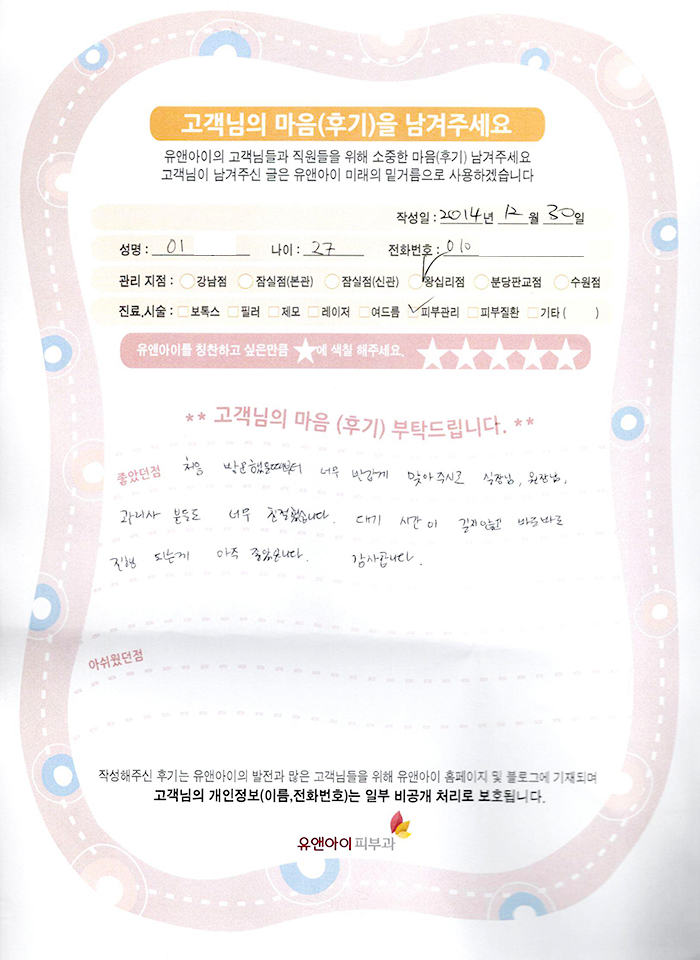 고객님의 마음(후기)을 남겨주세요
유앤아이의 고객님들과 직원들을 위해 소중한 마음(후기) 남겨주세요
고객님이 남겨주신 글은 유앤아이 미래의 밑거름으로 사용하겠습니다
작성일 : 2014년 12 월 30일
성명 : 이 나이 : 27 전화번호 : 010
관리 지점 : 강남점 잠실점(본관) 잠실점(신관) 왕십리점 분당판교점 수원점
진료.시술 : 보톡스 필러 제모 레이저 여드름 피부관리 피부질환 기타 ( )
유앤아이를 칭찬하고 싶은만큼 ★에 색칠 해주세요. ★★★★★
** 고객님의 마음 (후기) 부탁드립니다. **
좋았던점 처음 방문했을때부터 너무 반갑게 맞아주시고 실장님, 원장님,
관리사 분들도 너무 친절했습니다. 대기 시간이 길지않고 바로바로
진행 되는게 아주 좋았습니다. 감사합니다.
아쉬웠던점
작성해주신 후기는 유앤아이의 발전과 많은 고객님들을 위해 유앤아이 홈페이지 및 블로그에 기재되며
고객님의 개인정보(이름,전화번호)는 일부 비공개 처리로 보호됩니다.
유앤아이피부과